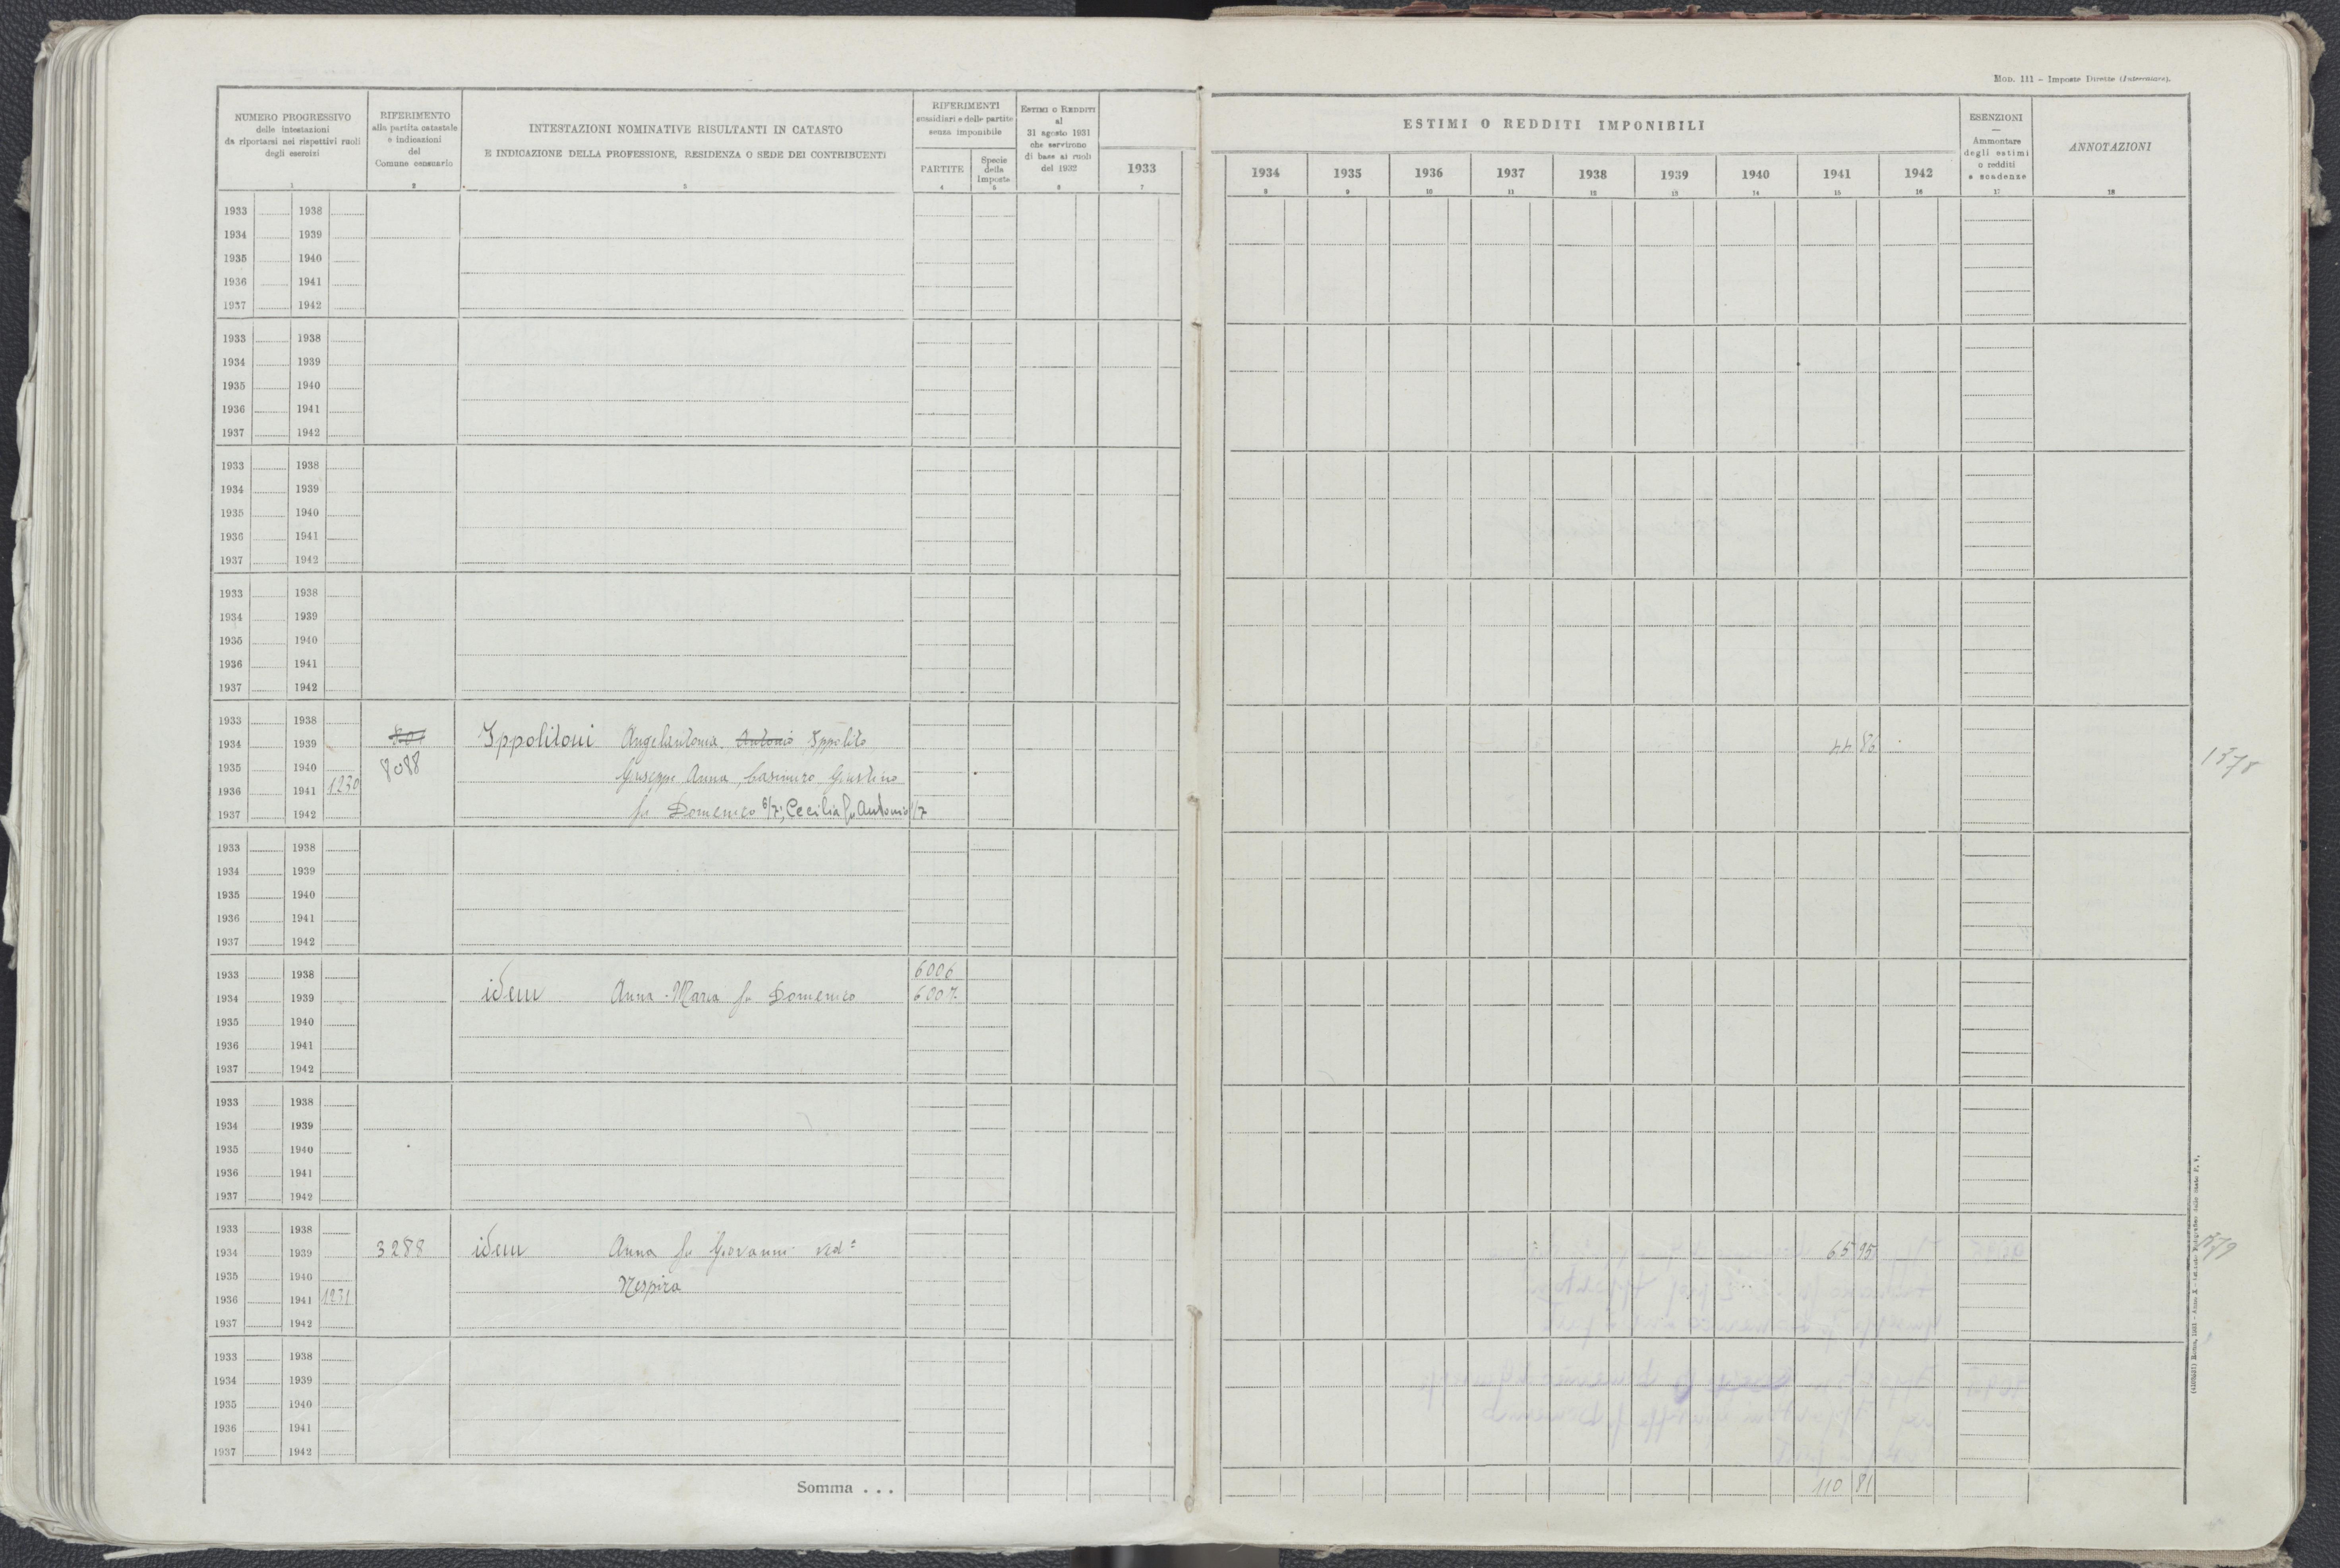 MOD. 111 – Imposte Dirette (Intercalare).
NUMERO PROGRESSIVO
delle intestazioni
da riportarsi nei rispettivi ruoli
degli esercizi
1
RIFERIMENTO
alla partita catastale
e indicazioni
del
Comune censuario
2
INTESTAZIONI NOMINATIVE RISULTANTI IN CATASTO
E INDICAZIONE DELLA PROFESSIONE, RESIDENZA O SEDE DEI CONTRIBUENTI
3
RIFERIMENTI
sussidiari e delle partite
senza imponibile
PARTITE
4
Specie
della
Imposta
5
ESTIMI O REDDITI
al
31 agosto 1931
che servirono
di base ai ruoli
del 1932
6
1933
7
ESTIMI O REDDITI IMPONIBILI
1934 1935 1936 1937 1938 1939 1940 1941 1942
8 9 10 11 12 13 14 15 16
ESENZIONI
—
Ammontare
degli estimi
o redditi
e scadenze
17
ANNOTAZIONI
18
1933 1938
1934 1939
1935 1940
1936 1941
1937 1942
1933 1938
1934 1939
1935 1940
1936 1941
1937 1942
1933 1938
1934 1939
1935 1940
1936 1941
1937 1942
1933 1938
1934 1939
1935 1940
1936 1941
1937 1942
1933 1938
1934 1939 Ippolitoni Angelantonia, Antonio Ippolito 44 86
1935 1940 8088 Giuseppe Anna, Casimiro, Giustino 1378
1936 1941 1230
1937 1942 fu Domenico 6/7; Cecilia fu Antonio 1/7
1933 1938
1934 1939
1935 1940
1936 1941
1937 1942
1933 1938 6006
1934 1939 idem Anna-Maria fu Domenico 6007
1935 1940
1936 1941
1937 1942
1933 1938
1934 1939
1935 1940
1936 1941
1937 1942
1933 1938
1934 1939 3288 idem Anna fu Giovanni ved.ª 65 95
1935 1940 Nespira
1936 1941 1231
1937 1942
1933 1938
1934 1939
1935 1940
1936 1941
1937 1942
Somma . . . 110 81